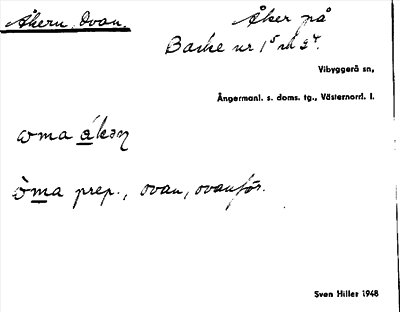 Åkern, Ovan.
Åker på
Backe nr 1⁵ och 2⁴.
Vibyggerå sn,
Ångermanl. s. doms. tg., Västernorrl. l.
oma åkən
òma prep., ovan, ovanför.
Sven Hiller 1948